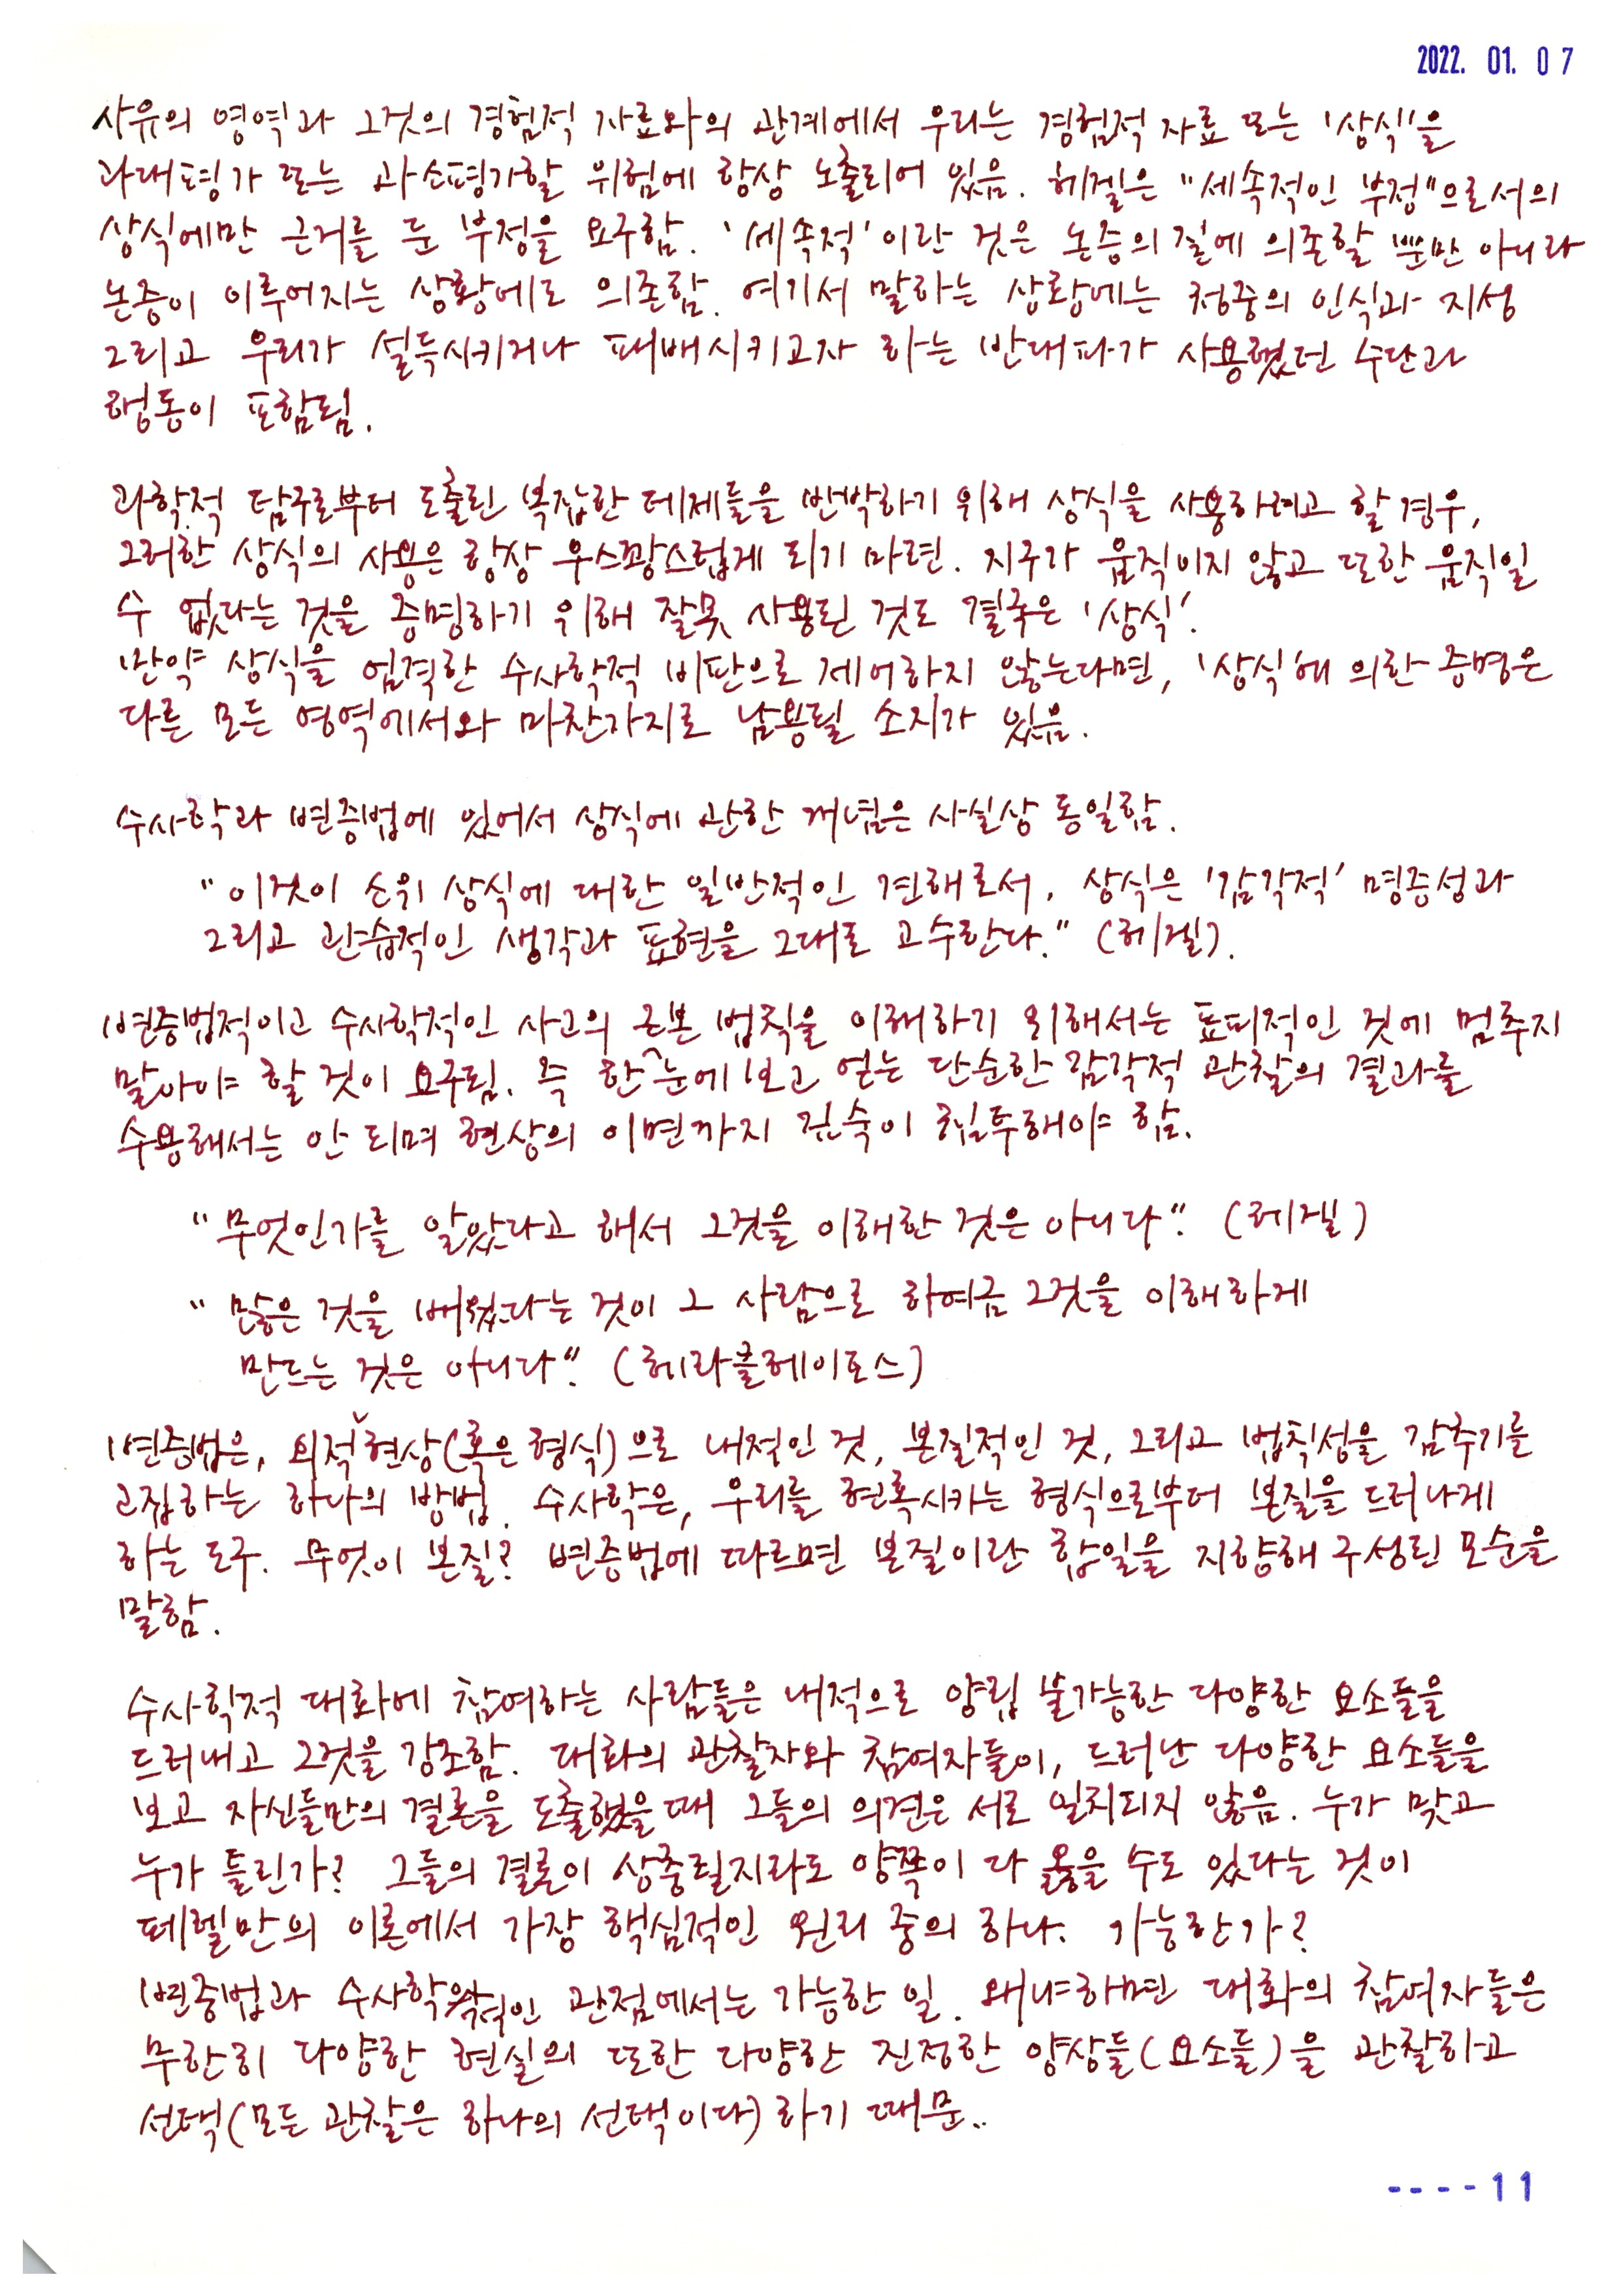 2022. 01. 07
사유의 영역과 그것의 경험적 자료와의 관계에서 우리는 경험적 자료 또는 '상식'을
과대평가 또는 과소평가할 위험에 항상 노출되어 있음. 헤겔은 "세속적인 부정"으로서의
상식에만 근거를 둔 부정을 요구함. '세속적'이란 것은 논증의 질에 의존할 뿐만 아니라
논증이 이루어지는 상황에도 의존함. 여기서 말하는 상황에는 청중의 인식과 지성
그리고 우리가 설득시키거나 패배시키고자 하는 반대파가 사용했던 수단과
행동이 포함됨.
과학적 탐구로부터 도출된 복잡한 테제들을 반박하기 위해 상식을 사용하려고 할 경우,
그러한 상식의 사용은 항상 우스꽝스럽게 되기 마련. 지구가 움직이지 않고 또한 움직일
수 없다는 것을 증명하기 위해 잘못 사용된 것도 결국은 '상식'.
만약 상식을 엄격한 수사학적 비판으로 제어하지 않는다면, '상식'에 의한 증명은
다른 모든 영역에서와 마찬가지로 남용될 소지가 있음.
수사학과 변증법에 있어서 상식에 관한 개념은 사실상 동일함.
"이것이 소위 상식에 대한 일반적인 견해로서, 상식은 '감각적' 명증성과
그리고 관습적인 생각과 표현을 그대로 고수한다." (헤겔).
변증법적이고 수사학적인 사고의 근본 법칙을 이해하기 위해서는 표피적인 것에 멈추지
말아야 할 것이 요구됨. 즉 한눈에 보고 얻는 단순한 감각적 관찰의 결과를
수용해서는 안 되며 현상의 이면까지 깊숙이 침투해야 함.
"무엇인가를 알았다고 해서 그것을 이해한 것은 아니다". (헤겔)
"많은 것을 배웠다는 것이 그 사람으로 하여금 그것을 이해하게
만드는 것은 아니다". (헤라클레이토스)
변증법은, 외적 현상(혹은 형식)으로 내적인 것, 본질적인 것, 그리고 법칙성을 감추기를
고집하는 하나의 방법. 수사학은, 우리를 현혹시키는 형식으로부터 본질을 드러나게
하는 도구. 무엇이 본질? 변증법에 따르면 본질이란 합일을 지향해 구성된 모순을
말함.
수사학적 대화에 참여하는 사람들은 내적으로 양립 불가능한 다양한 요소들을
드러내고 그것을 강조함. 대화의 관찰자와 참여자들이, 드러난 다양한 요소들을
보고 자신들만의 결론을 도출했을 때 그들의 의견은 서로 일치되지 않음. 누가 맞고
누가 틀린가? 그들의 결론이 상충될지라도 양쪽이 다 옳을 수도 있다는 것이
페렐만의 이론에서 가장 핵심적인 원리 중의 하나. 가능한가?
변증법과 수사학적인 관점에서는 가능한 일. 왜냐하면 대화의 참여자들은
무한히 다양한 현실의 또한 다양한 진정한 양상들(요소들)을 관찰하고
선택(모든 관찰은 하나의 선택이다)하기 때문..
----11